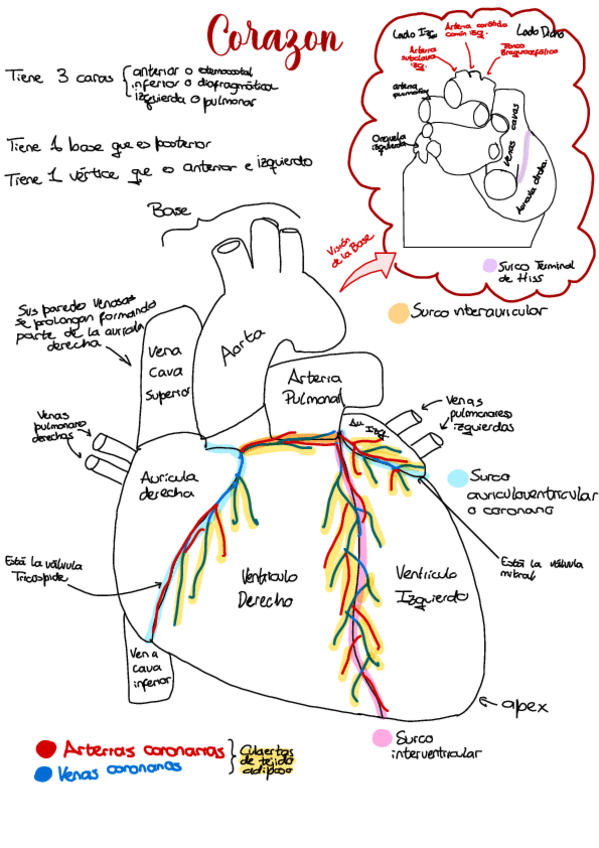 Corazon
Tiene 3 caras
anterior o esternocostal
inferior o diafragmática
izquierda o pulmonar
Tiene 1 base que es posterior
Tiene 1 vértice que es anterior e izquierdo
Lado Izq
Arteria carótida
común izq.
Lado Dcho
Arteria
subclavia
izq.
Tronco
Braquiocefálico
arteria
pulmonar
Orejuela
izquierda
Venas cavas
Aurícula drcha.
Visión
de la Base
Surco Terminal
de Hiss
Surco interauricular
Base
Sus paredes venosas
se prolongan formando
parte de la aurícula
derecha
Vena
Cava
Superior
Aorta
Arteria
Pulmonar
Venas
pulmonares
derechas
Au Izq
Venas
pulmonares
izquierdas
Aurícula
derecha
Surco
auriculoventricular
o coronario
Está la válvula
Tricuspide
Ventrículo
Derecho
Ventrículo
Izquierdo
Está la válvula
mitral
Vena
cava
inferior
apex
Surco
interventricular
Arterias coronarias
Venas coronarias
Cubiertas
de tejido
adiposo